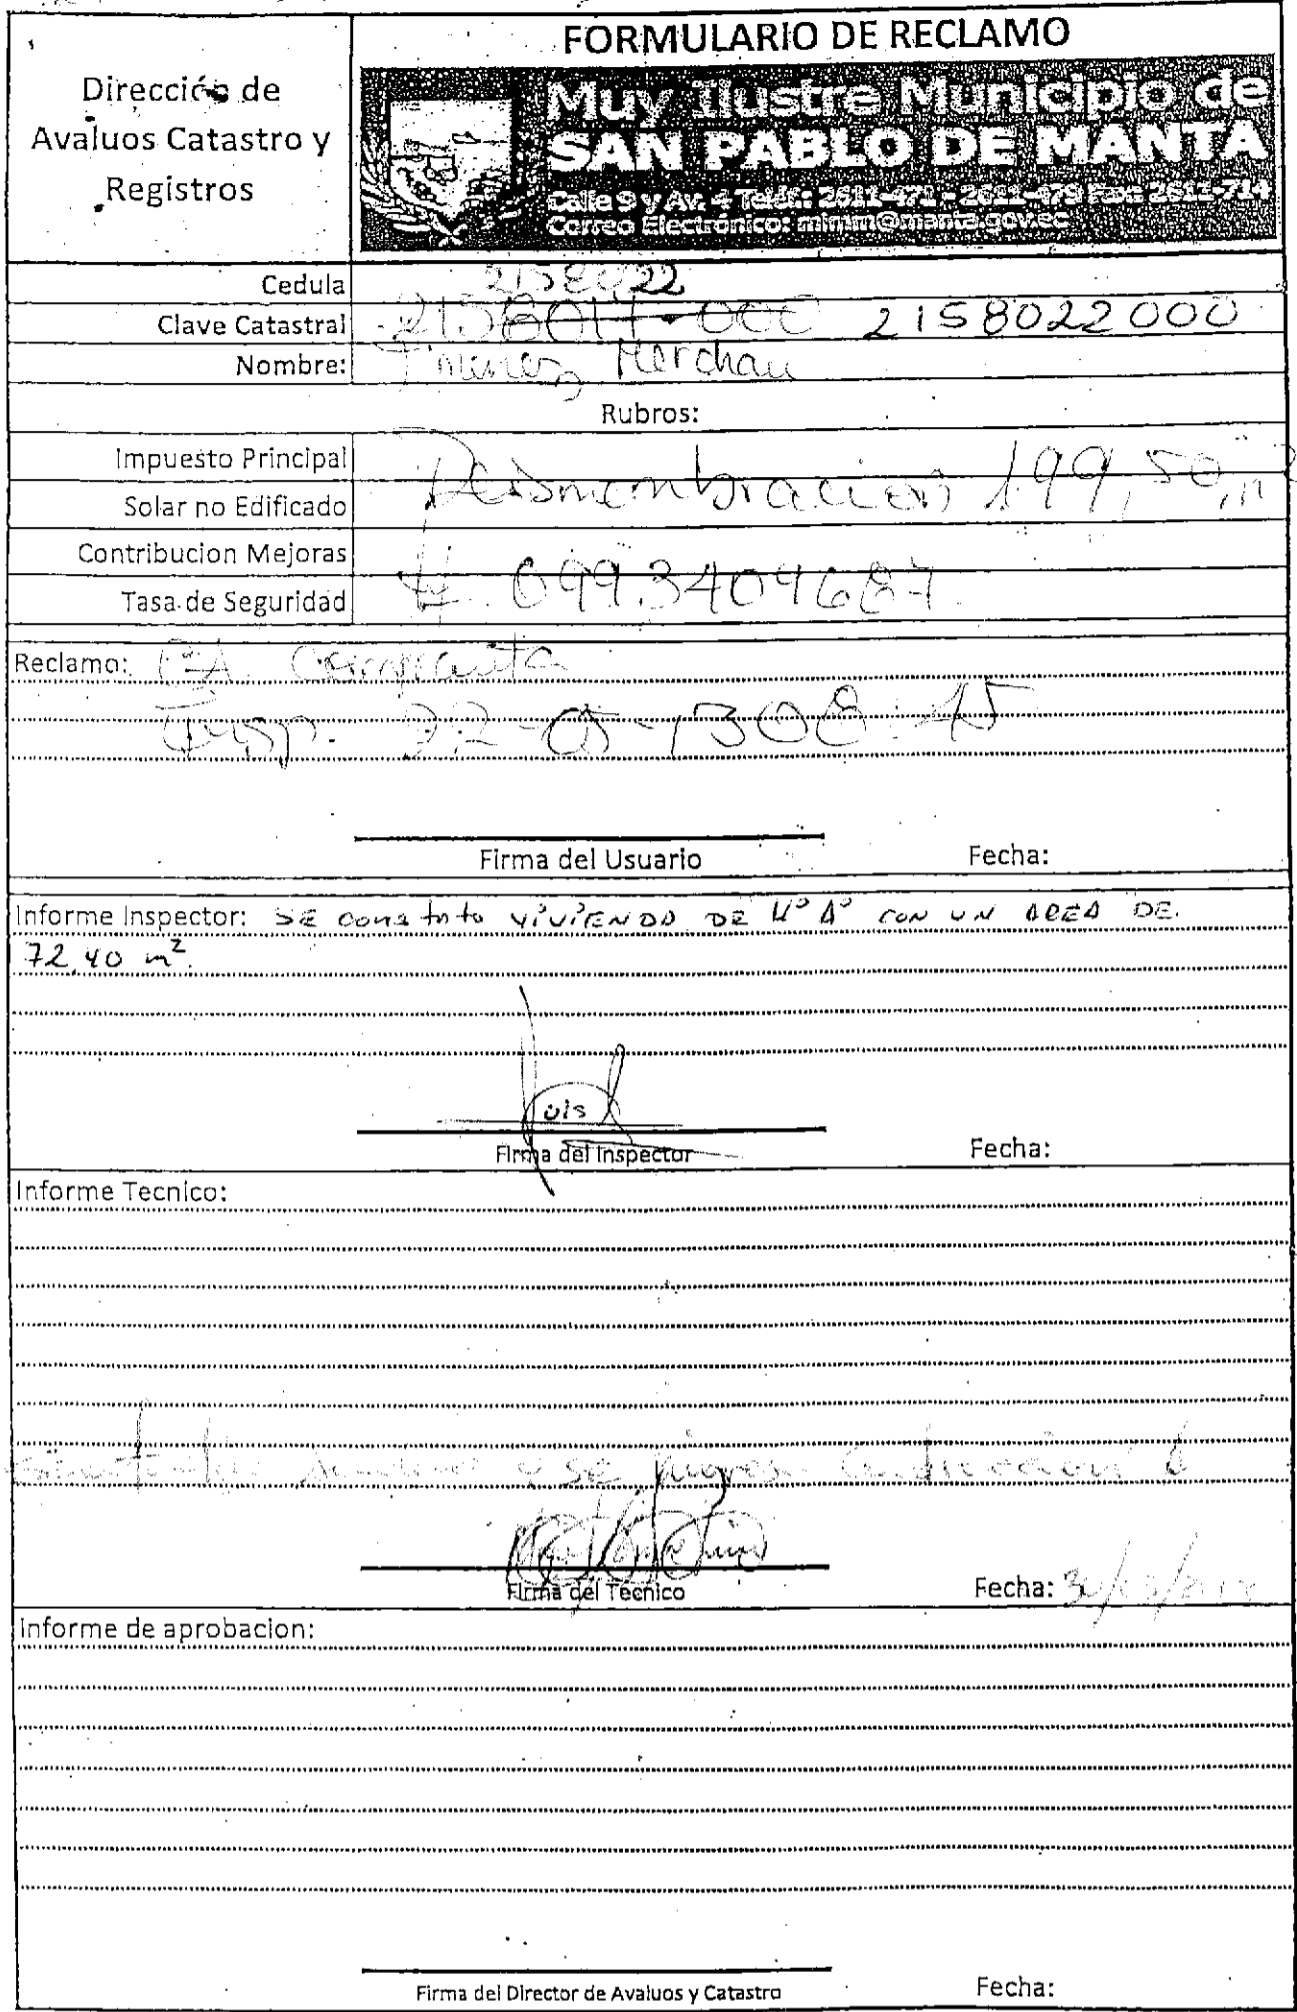 FORMULARIO DE RECLAMO
Dirección de
Avaluos Catastro y
Registros
Muy Ilustre Municipio de
SAN PABLO DE MANTA
Calle 9 y Av. 4 Telef: 2611-471 - 2611-479 Fax: 2611-714
Correo Electrónico: mimm@manta.gov.ec
Cedula 2158022
Clave Catastral 2158014-000 2158022000
Nombre: Merchan
Rubros:
Impuesto Principal
Desmembracion 199,50 m2
Solar no Edificado
Contribucion Mejoras
Tasa de Seguridad
Reclamo:
Insp. 22-05-13 08:45
Firma del Usuario Fecha:
Informe Inspector: SE constato VIVIENDA DE Hº Aº CON UN AREA DE
72,40 m²
Luis
Firma del Inspector Fecha:
Informe Tecnico:
y se
Firma del Tecnico Fecha:
Informe de aprobacion:
Firma del Director de Avaluos y Catastro Fecha: